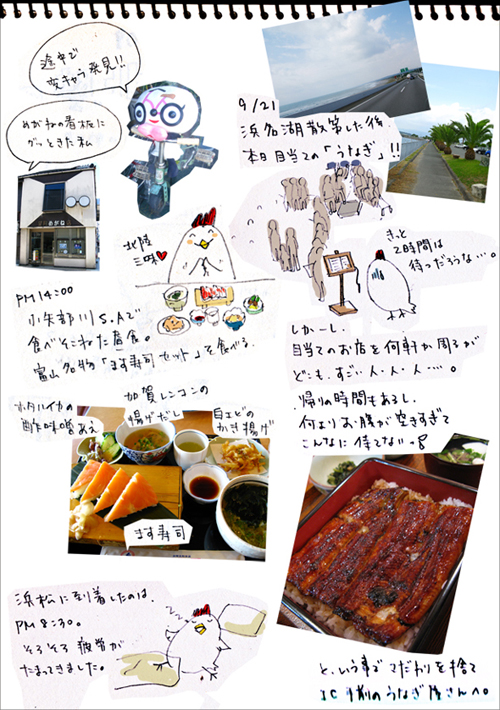 途中で
変キャラ発見!!
めがねの看板に
グッときた私
めがね
北陸
三昧
PM14:00
小矢部川S.Aで
食べそこねた昼食。
富山名物「ます寿司セット」を食べる。
ホタルイカの
酢味噌あえ
加賀レンコンの
揚げだし
白エビの
かき揚げ
ます寿司
浜松に到着したのは、
PM8:30。
そろそろ疲労が
たまってきました。
9/21
浜名湖散策した後、
本日目当ての「うなぎ」!!
きっと
2時間は
待つだろうな…。
しかーし、
目当てのお店を何軒か周るが
どこも、すごい人・人・人…。
帰りの時間もあるし、
何よりお腹が空きすぎて
こんなに待てないっ
と、いう事で こだわりを捨て
IC手前のうなぎ屋さんへ。